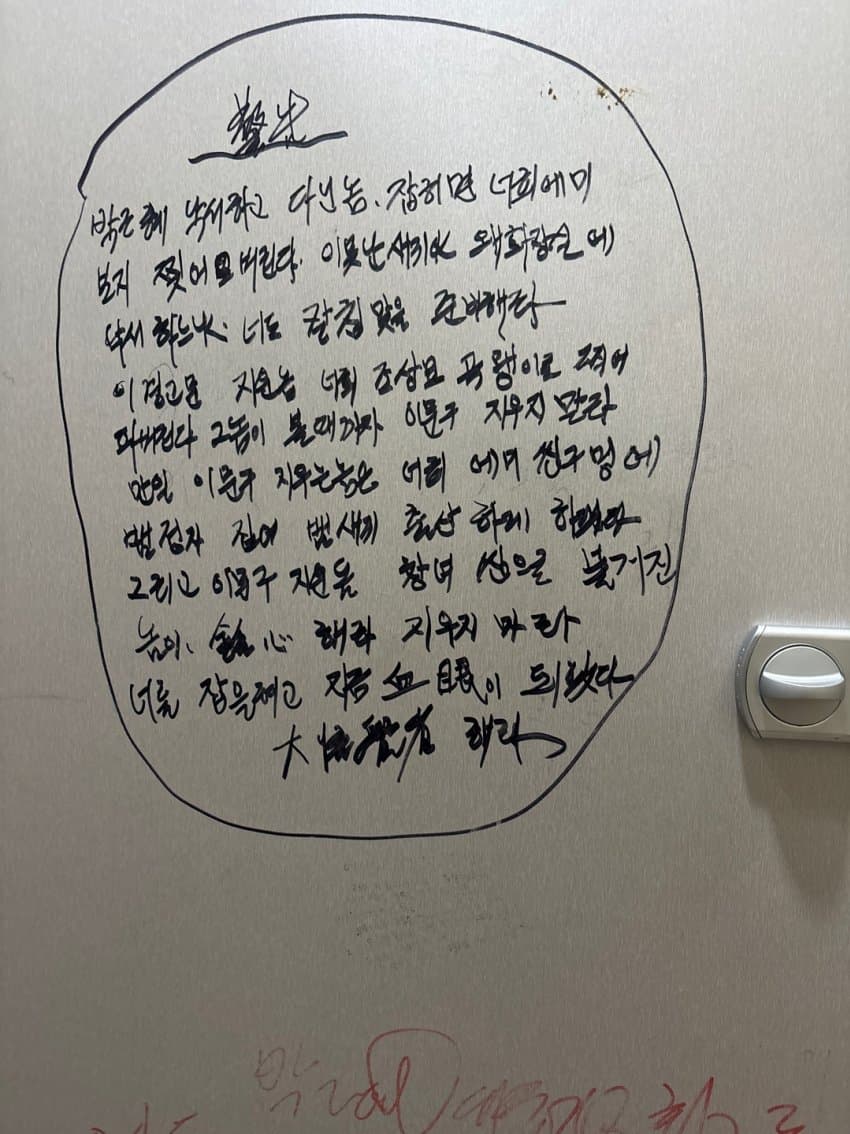 警告
박근혜 낙서하고 다닌놈. 잡히면 너희에미
보지 찢어 버린다. 이못난새끼야 왜화장실에
낙서 하느냐. 너도 칼침 맞을 준비해라
이경고문 지운놈 너희 조상묘 곡괭이로 찍어
파버린다 그놈이 볼때까지 이문구 지우지 말라
만일 이문구 지우는놈은 너희 에미 씹구멍에
뱀정자 집어 뱀새끼 출산 하게 하겠다
그리고 이문구 지운놈 창녀 씹으로 불거진
놈이. 心 해라 지우지 마라
너를 잡을려고 지금 血眼이 되었다
大 해라
박근혜